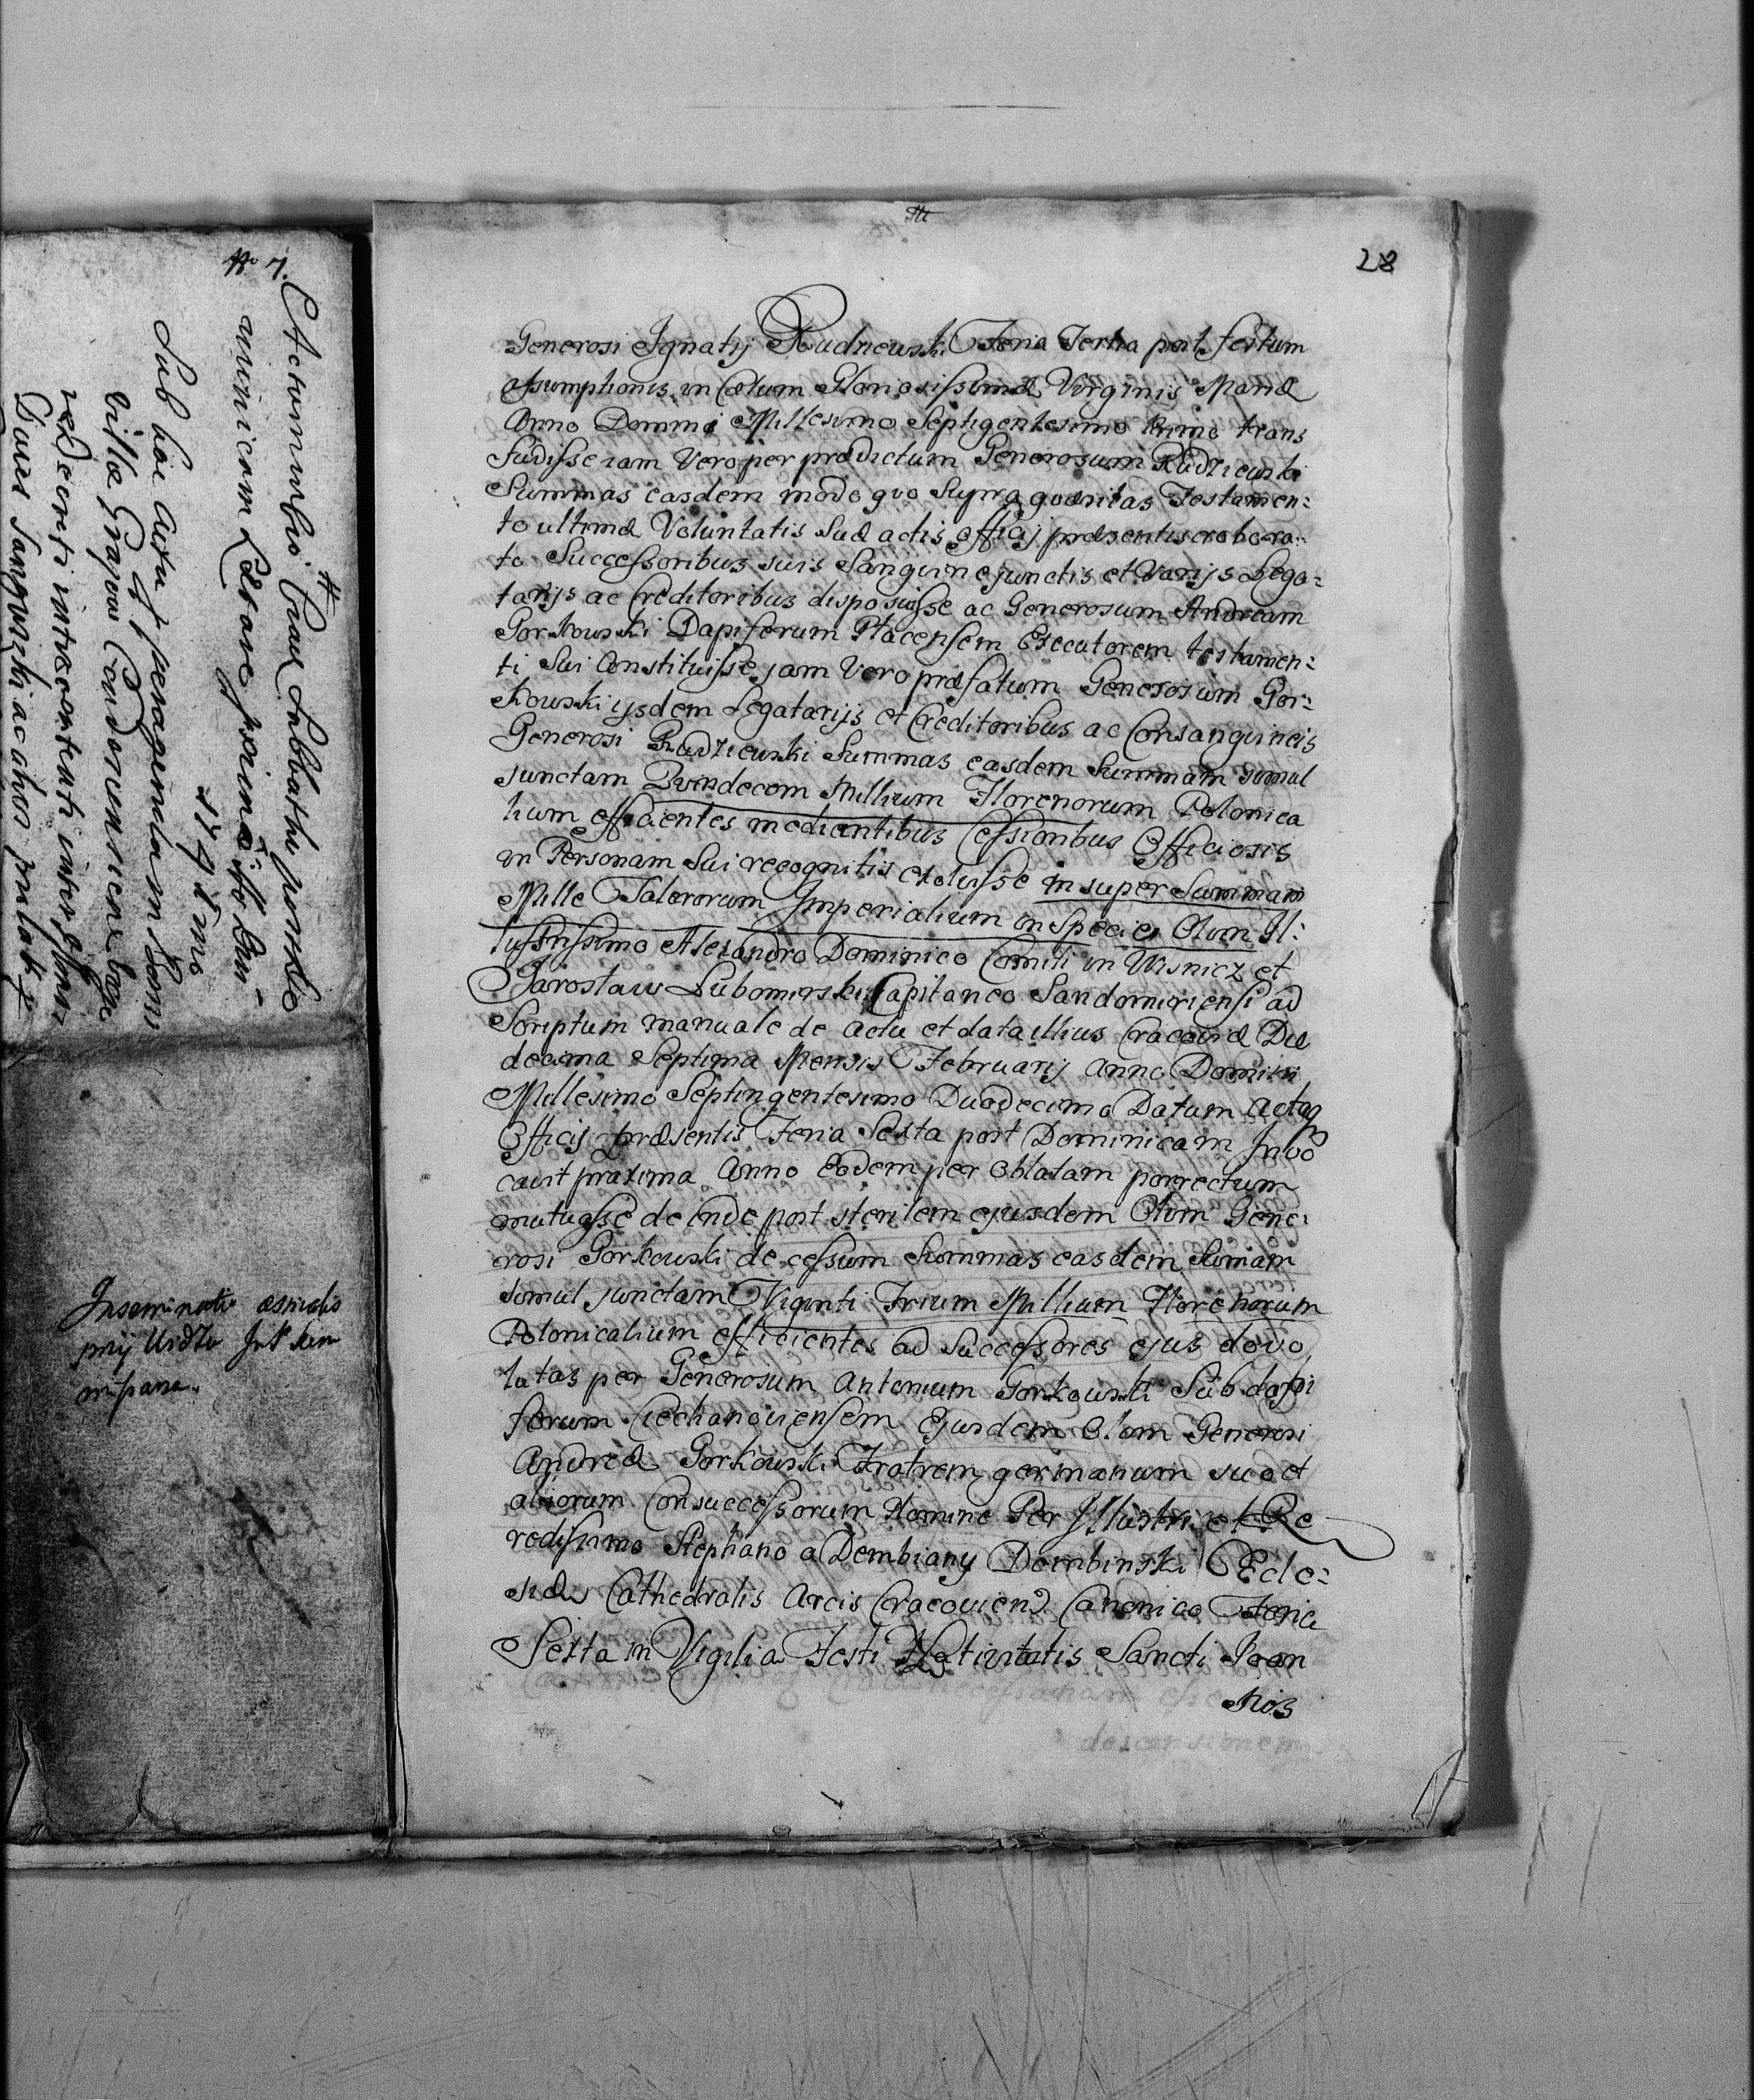 28
Generosi Ignatij Rudzicuski Feria Tertia post festum
Assumptionis in Cœlum Gloriosissimæ Virginis Mariæ
Anno Domini Millesimo Septigentesimo Primo trans
fudisse iam Vero per prædictum Generosum Rudzieuski
Summas easdem modo quo supra quæsitas Testamen:
to ultimæ Voluntatis Suæ actis Officij præsentis robora:
to Successoribus suis Sanguine junctis et Varijs Lega:
tarijs ac Creditoribus disposuisse ac Generosum Andream
Gorkowski Dapiferum Ptacensem Executorem testamen:
ti Sui Constituisse jam Vero præfatum Generosum Gor:
kowski ijsdem Legatarijs et Creditoribus ac Consanguineis
Generosi Rudzieuski Summas easdem Summam simul
junctam Quindecem Millium Florenorum Polonica
lium efficientes medientibus Cessionibus Officiosis
in Personam Sui recognitis exoluisse in super Summam
Mille Talerorum Imperialium in Specie Olim Il:
lustrissimo Alexandro Dominico Comiti in Wisnicz et
Jarostaw Lubomirski Capitaneo Sandomiriensi ad
Scriptum manuale de actu et data illius Cracoviæ Die
decima Septima Mensis Februarij Anno Domini
Millesimo Septingentesimo Duodecimo Datum actisq
Officij præsentis Feria Sexta post Dominicam Invo
cavit proxima Anno Eodem per Oblatam porrectum
mutuasse de inde post sterilem ejusdem Olim Gene:
rosi Gorkowski decessum Summas easdem Sumam
simul junctam Viginti Trium Millium Florenorum
Polonicalium efficientes ad Successores ejus devo
lutas per Generosum Antonium Gorkowski Subdapi
ferum Ciechanoviensem Ejusdem Olim Generosi
Andreæ Gorkowski Fratrem germanum suo et
aliorum Consuccessorum Nomine Per Illustri et Re
vedissimo Stephano a Dembiany Dembinski Eccle:
siæ Cathedralis Arcis Cracovien Canonico Feria
Sexta in Vigilia Festi Nativitatis Sancti Joan
nis
No 7.
Actum in
Sabbatho
1747mo
Sub hoc actu peragenda in bonis
villæ
contenti inter
Sanguszki ac alios prælati
Inseminatio æstivalis